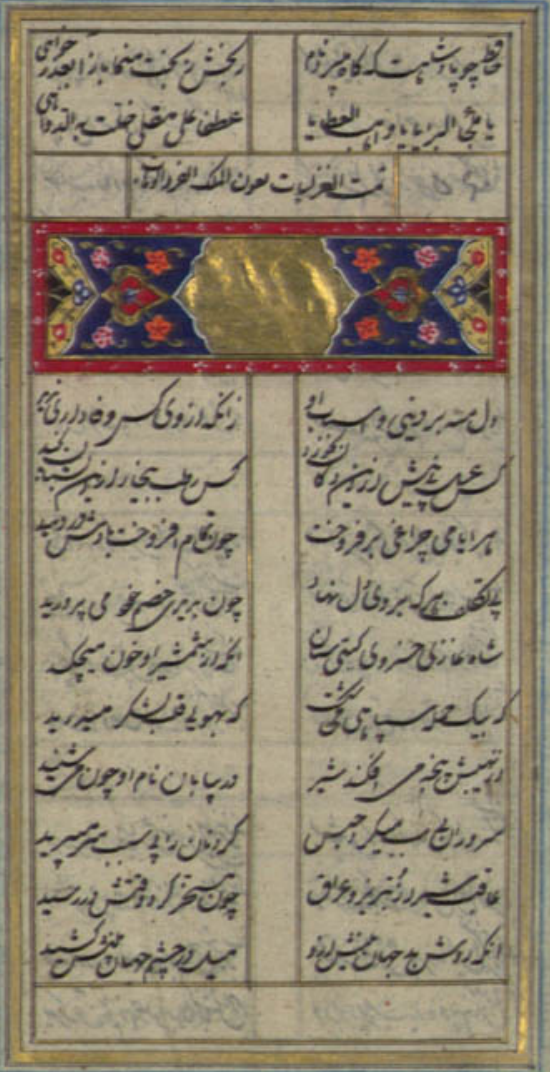 حافظ چو پادشاهت که گاه میبرد نام
رنجش ز بخت منما بازآ بعذرخواهی
یا ملجأ البرایا یا واهب العطایا
عطفا علی مقل حلت به الدواهی
تمت الغزلیات بعون الملک
دل منه بر دنیی و اسباب او
زانکه از وی کس وفاداری ندید
کس عسل بی نیش ازین دکان نخورد
کس رطب بیخار ازین بستان نچید
هر بایامی چراغی بر فروخت
چون تمام افروخت بادش در دمید
بی تکلف هر که بر وی دل نهاد
چون بدیدی خصم خود می پرورید
شاه غازی خسرو گیتی ستان
انکه از شمشیر او خون میچکید
که بیک حمله سپاهی می شکست
که بهویی قلب لشکر میدرید
از نهیبش پنجه می افکند شیر
در بیابان نام او چون می شنید
سروران را بی سبب میکرد حبس
گردنان را بی سبب سر میبرید
عاقبت شیراز و تبریز و عراق
چون مسخر کرد وقتش در رسید
انکه روشن بد جهان بینش ازو
میل در چشم جهان بینش کشید